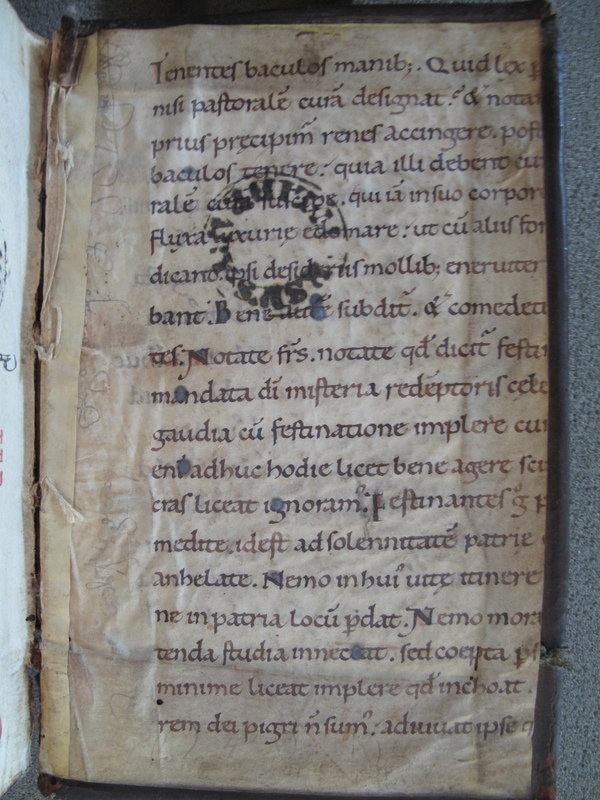 Tenentes baculos manib;. Quid lex p
nisi pastoralē curā designat? & nota
prius precipim̄ renes accingere. post
baculos tenere: quia illi debent cur
ralē curā suscipe. qui iā in suo corpor
fluxa luxurię edomare: ut cū aliis for
dicant. ipsi desideriis mollib; eneruiter
bant. Bene autē subdit̄. & comedeti
tes. Notate frs. notate qđ dicit̄ festin
mandata dī misteria redēptoris cele
gaudia cū festinatione implere cur
eni adhuc hodie licet bene agere sci
cras liceat ignoram. Festinantes g p
medite. idest ad solennitatē patrie
anhelate. Nemo in hui uitę itinere
ne in patria locū pdat. Nemo mor
tenda studia innectat. sed coepta p
minime liceat implere qđ inchoat.
rem dei pigri n̄ sum. adiuuat ipse q